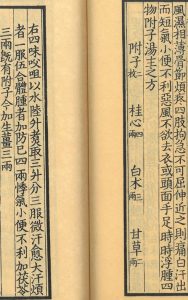 風濕相薄骨節煩疼四肢拘急不可屈伸近之則痛白汗出
而短氣小便不利惡風不欲去衣或頭面手足時時浮腫四
物附子湯主之方
附子二枚 桂心四兩 白朮三兩 甘草二兩
右四味㕮咀以水六升煮取三升分三服微汗愈大汗煩
者一服五合體腫者加防已四兩悸氣小便不利加茯苓
三兩既有附子今加生薑三兩